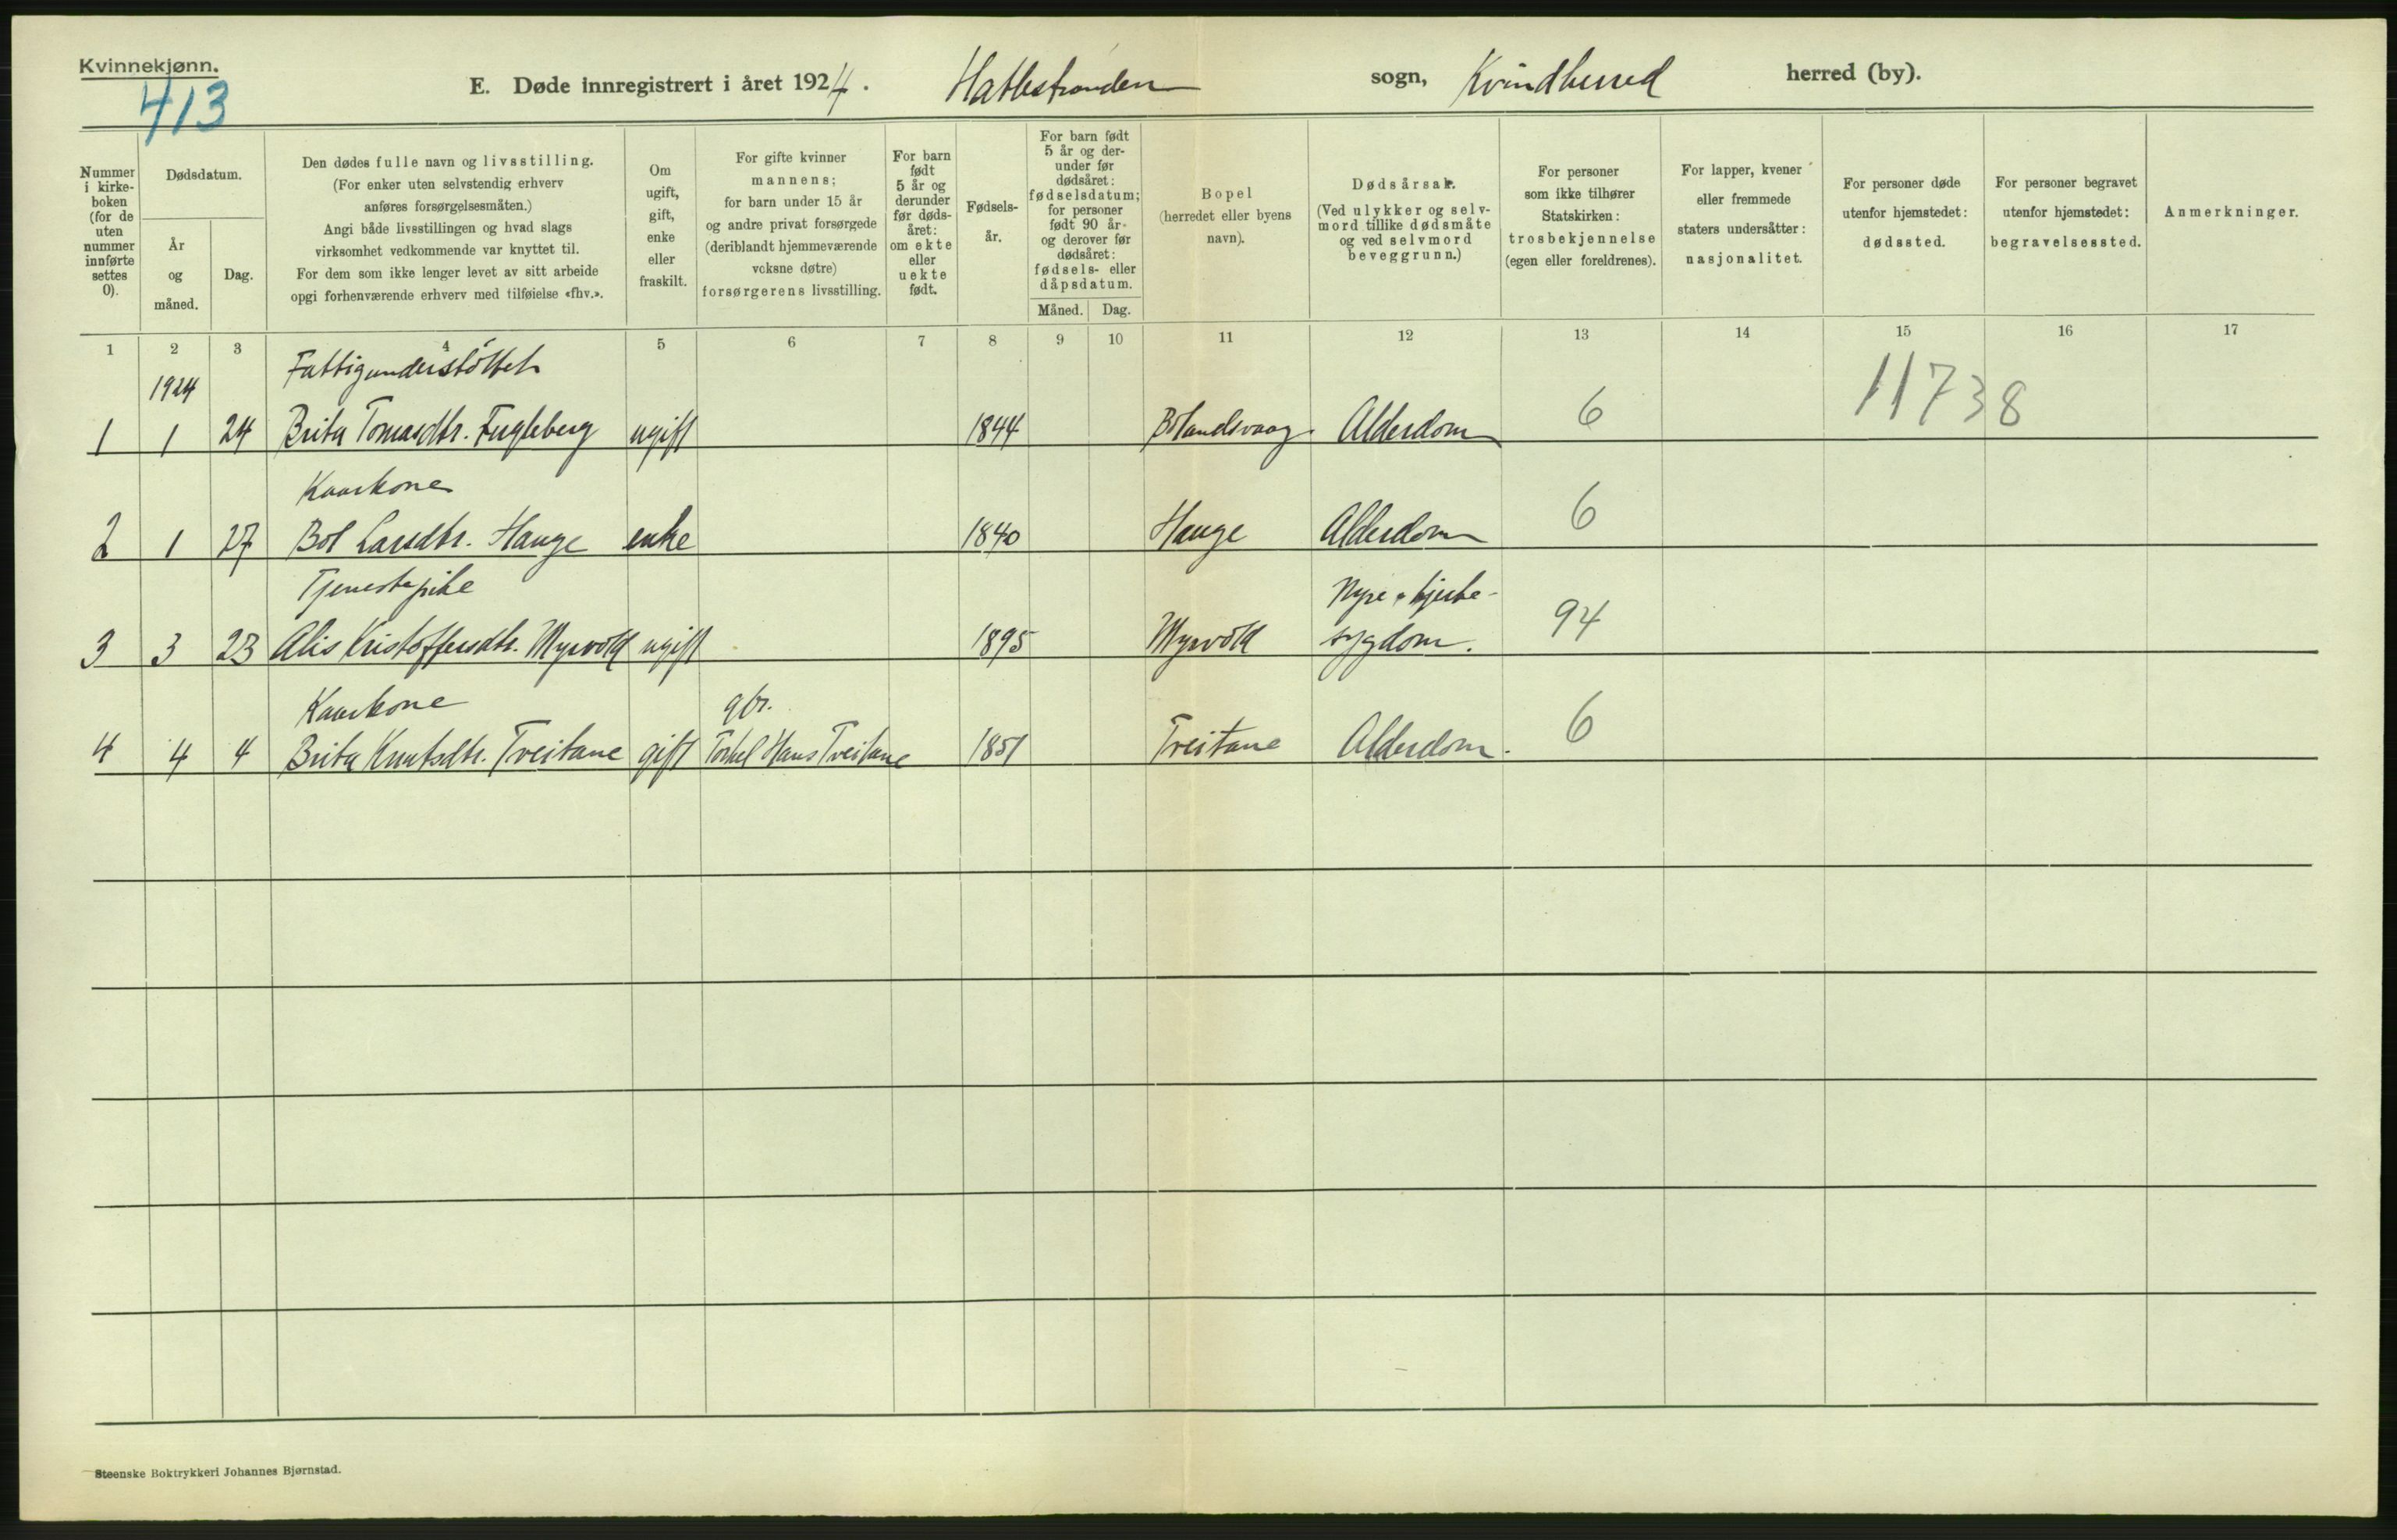 Kvinnekjønn.
413
E. Døde innregistrert i året 1924. Hatlestranden sogn, Kvindherred herred (by).
Nummer i kirke- boken (for de uten nummer innførte settes 0).
Dødsdatum.
År og måned.
Dag.
Den dødes fulle navn og livsstilling.
(For enker uten selvstendig erhverv
anføres forsørgelsesmåten.)
Angi både livsstillingen og hvad slags
virksomhet vedkommende var knyttet til.
For dem som ikke lenger levet av sitt arbeide
opgi forhenværende erhverv med tilføielse «fhv.».
Om ugift, gift, enke eller fraskilt.
For gifte kvinner
mannens;
for barn under 15 år
og andre privat forsørgede
(deriblandt hjemmeværende
voksne døtre)
forsørgerens livsstilling.
For barn født 5 år og derunder før døds- året: om ekte eller uekte født.
Fødsels- år.
For barn født 5 år og der- under før dødsåret: fødselsdatum; for personer født 90 år og derover før dødsåret: fødsels- eller dåpsdatum.
Måned. Dag.
Bopel
(herredet eller byens
navn).
Dødsårsak.
(Ved ulykker og selv-
mord tillike dødsmåte
og ved selvmord
beveggrunn.)
For personer
som ikke tilhører
Statskirken:
trosbekjennelse
(egen eller foreldrenes).
For lapper, kvener
eller fremmede
staters undersåtter:
nasjonalitet.
For personer døde
utenfor hjemstedet:
dødssted.
For personer begravet
utenfor hjemstedet:
begravelsessted.
Anmerkninger.
1 2 3 4 5 6 7 8 9 10 11 12 13 14 15 16 17
1924 Fattigunderstøttet 11738
1 1 24 Brita Tomasdtr. Fugleberg ugift 1844 Ølandsvaag. Alderdom 6
Kaarkone
2 1 27 Bol Larsdtr. Hauge enke 1840 Hauge Alderdom 6
Tjenestepike Nyre & hjerte-
3 3 23 Alis Kristoffersdtr. Myrvold ugift 1895 Myrvold sygdom. 94
Kaarkone gbr.
4 4 4 Brita Knutsdtr. Tveitane gift Torkel Hans Tveitane 1851 Tveitane Alderdom. 6
Steenske Boktrykkeri Johannes Bjørnstad.